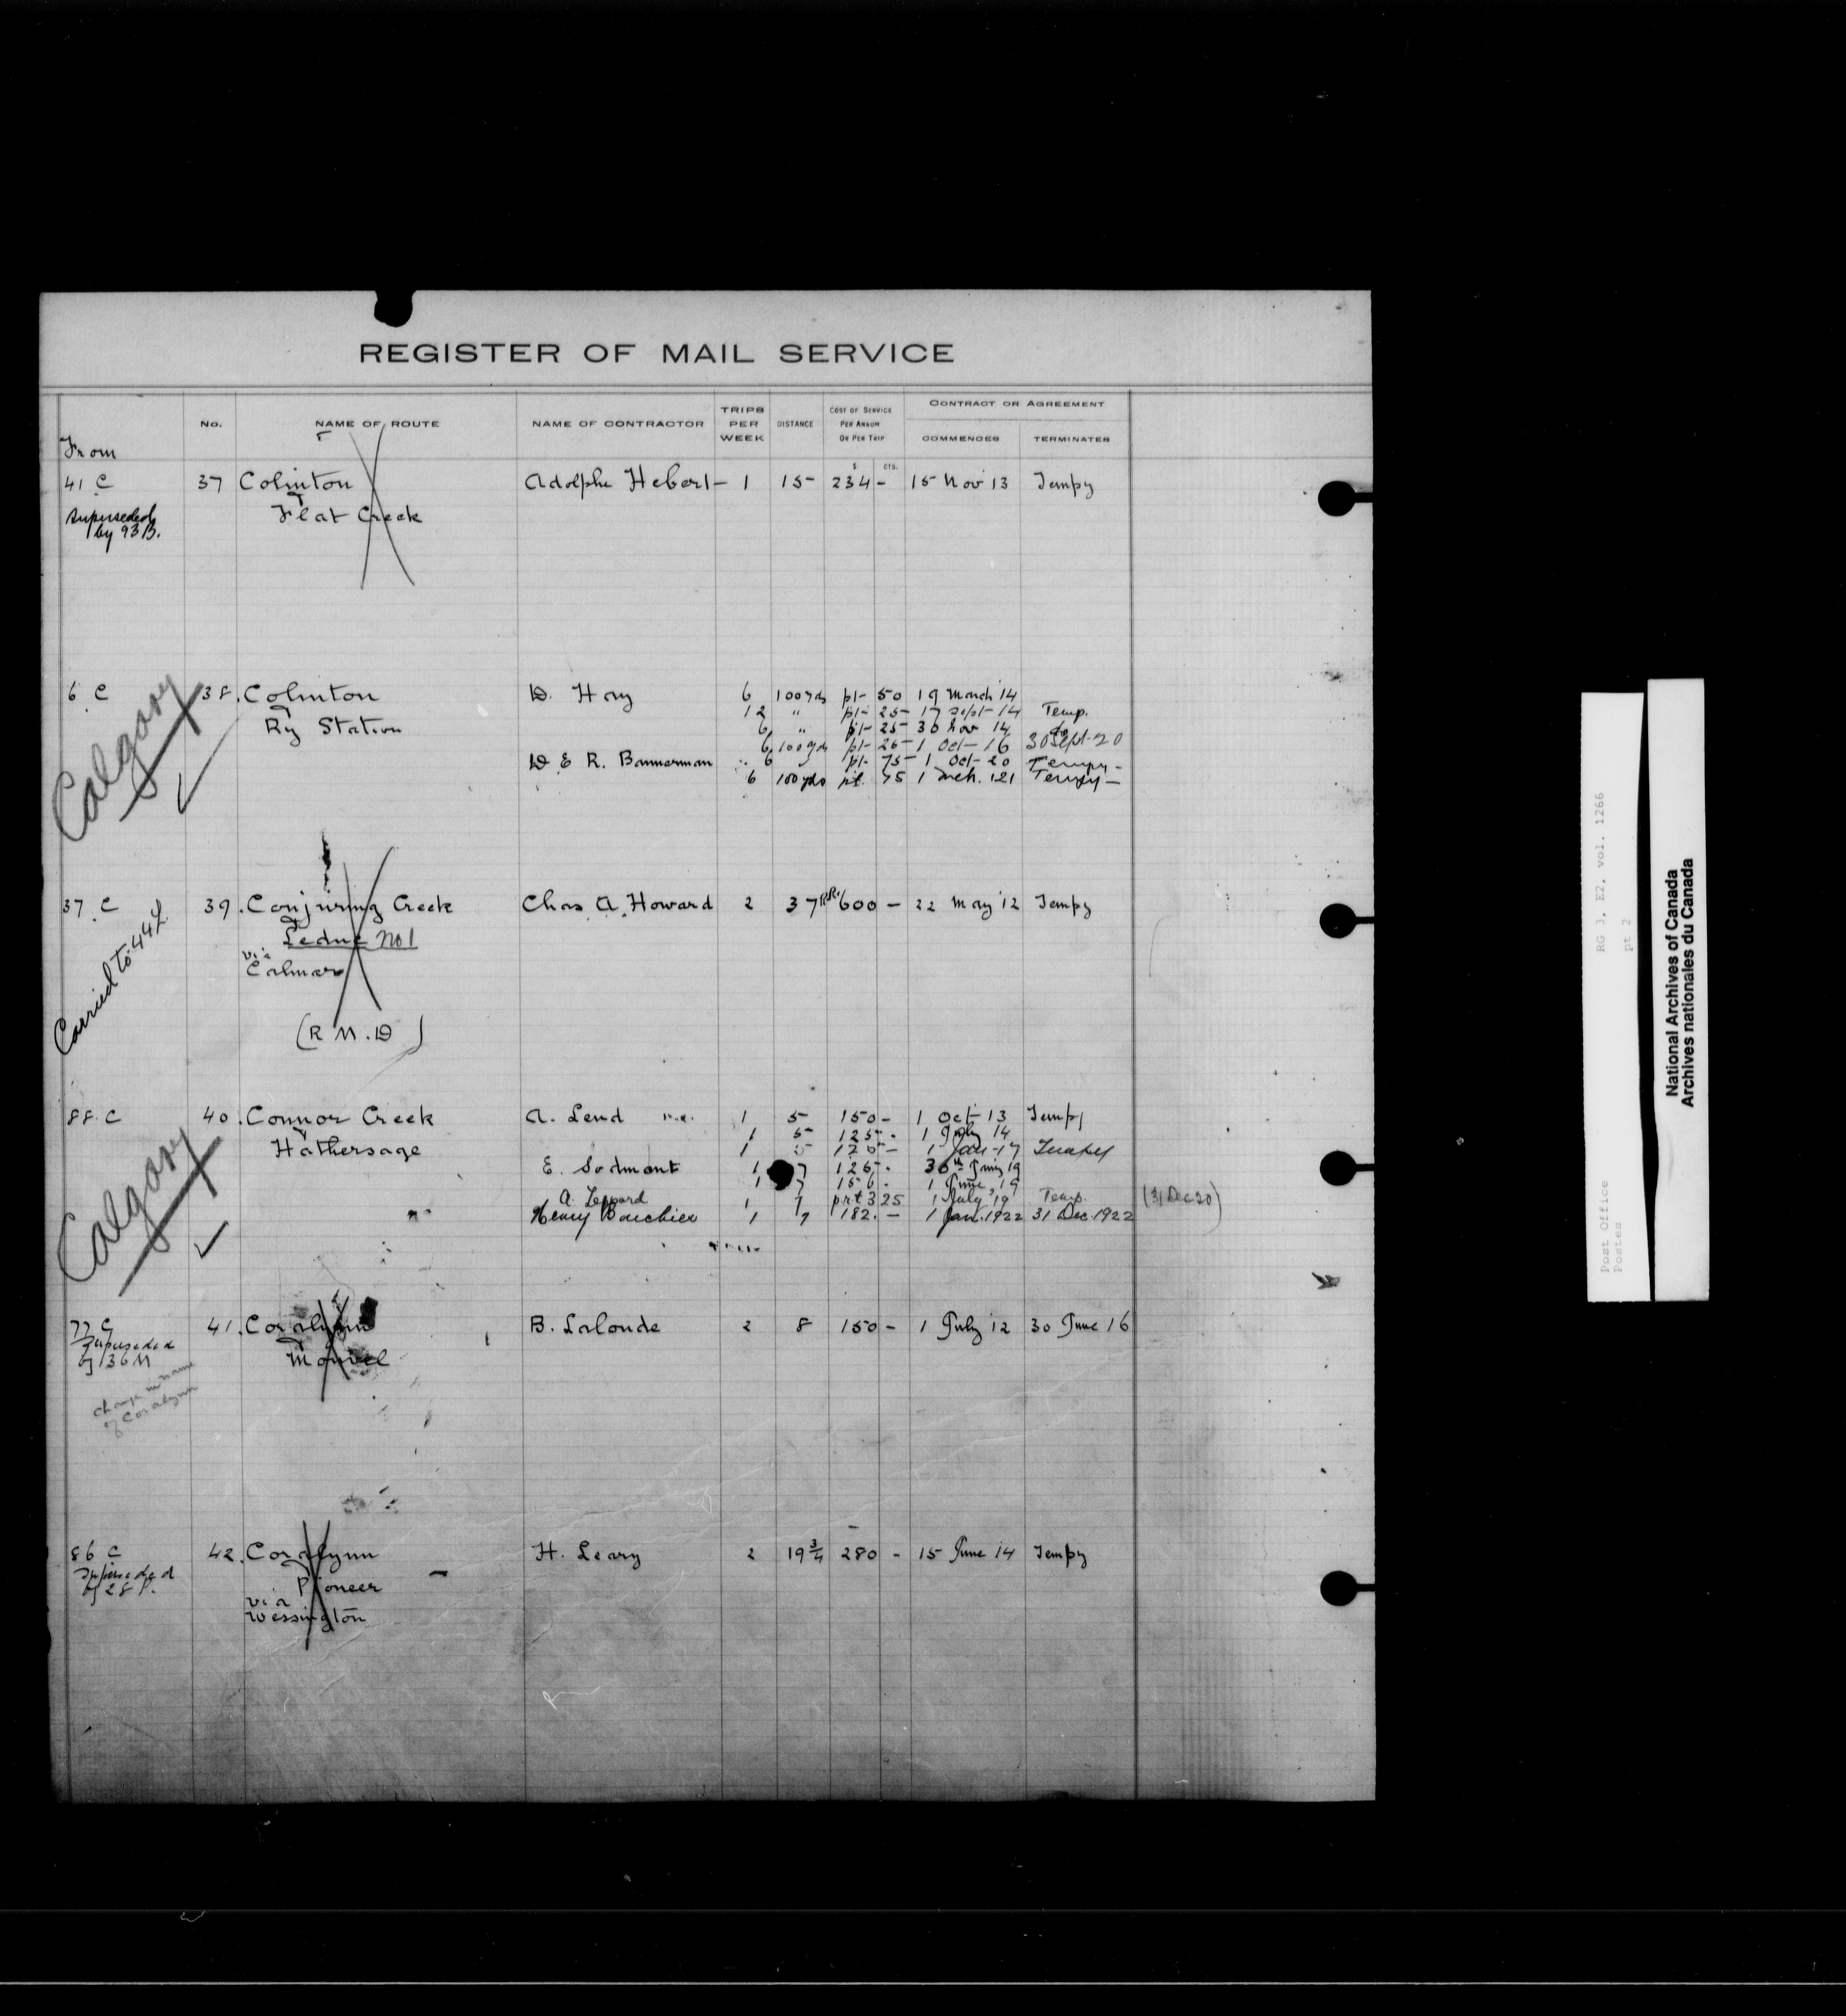 REGISTER OF MAIL SERVICE
From
No.
NAME OF ROUTE
NAME OF CONTRACTOR
TRIPS PER WEEK
DISTANCE
COST OF SERVICE PER ANNUM OR PER TRIP
CONTRACT OR AGREEMENT
COMMENCES
TERMINATES
$ CTS.
41 C 37 Colinton Adolphe Hebert 1 15 234 - 15 Nov 13 Tempy
Superseded Flat Creek
by 93 B.
6 C 38. Colinton D. Hay 6 100 yds pt 50 19 March 14
12 " pt 25 17 Sept 14 Temp.
Ry Station 6 " pt 25 30 Nov 14 do
6 100 yds pt 25 1 Oct 16 30 Sept 20
D E R. Bannerman 6 " pt 75 1 Oct 20 Tempy -
6 100 yds pt. 75 1 Mch. 121 Tempy -
Calgary
37 C 39. Conjuring Creek Chas. A. Howard 2 37 RR. 600 - 22 May 12 Tempy
Leduc No 1
via
Calmar
Carried to 44 L
(R M. D)
88 C 40. Connor Creek A. Lend 1 5 150 - 1 Oct 13 Tempy
1 5 125 - 1 July 14
Hathersage 1 5 125 - 1 Jan 17 Tempy
E. Sodmont 1 7 125 - 30th Jun 19
1 7 156 - 1 June 19
A. Leppard 1 7 prt 3 25 1 July 19 Temp. (31 Dec 20)
Henry Bouchier 1 7 182. - 1 Jan. 1922 31 Dec. 1922
Calgary
77 C 41. Coralynn B. Lalonde 2 8 150 - 1 July 12 30 June 16
Superseded
by 136 M
change in name
of Coralynn
86 C 42. Coralynn H. Leary 2 19 3/4 280 - 15 June 14 Tempy
Superseded Pioneer
by 28 P. via
Wessington
RG 3, E2, vol. 1266
pt 2
Post Office
Postes
National Archives of Canada
Archives nationales du Canada